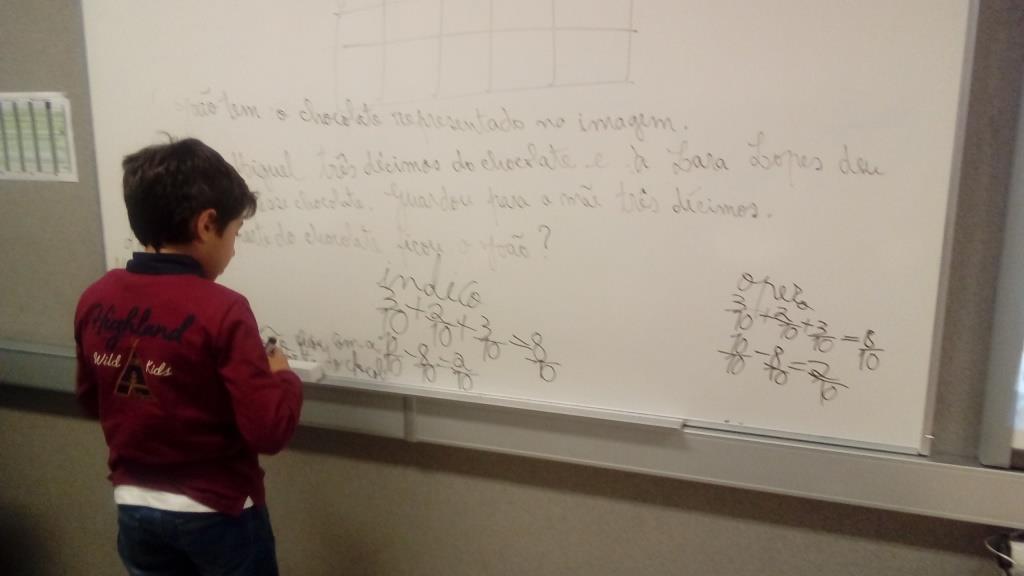 tem o chocolate representado na imagem.
Miguel três décimos do chocolate e à Lara Lopes deu
chocolate. Guardou para a mãe três décimos.
do chocolate ficou o João?
indico
3/10 + 2/10 + 3/10 = 8/10
10/10 - 8/10 = 2/10
opero
3/10 + 2/10 + 3/10 = 8/10
10/10 - 8/10 = 2/10
Highland
Wild Kids